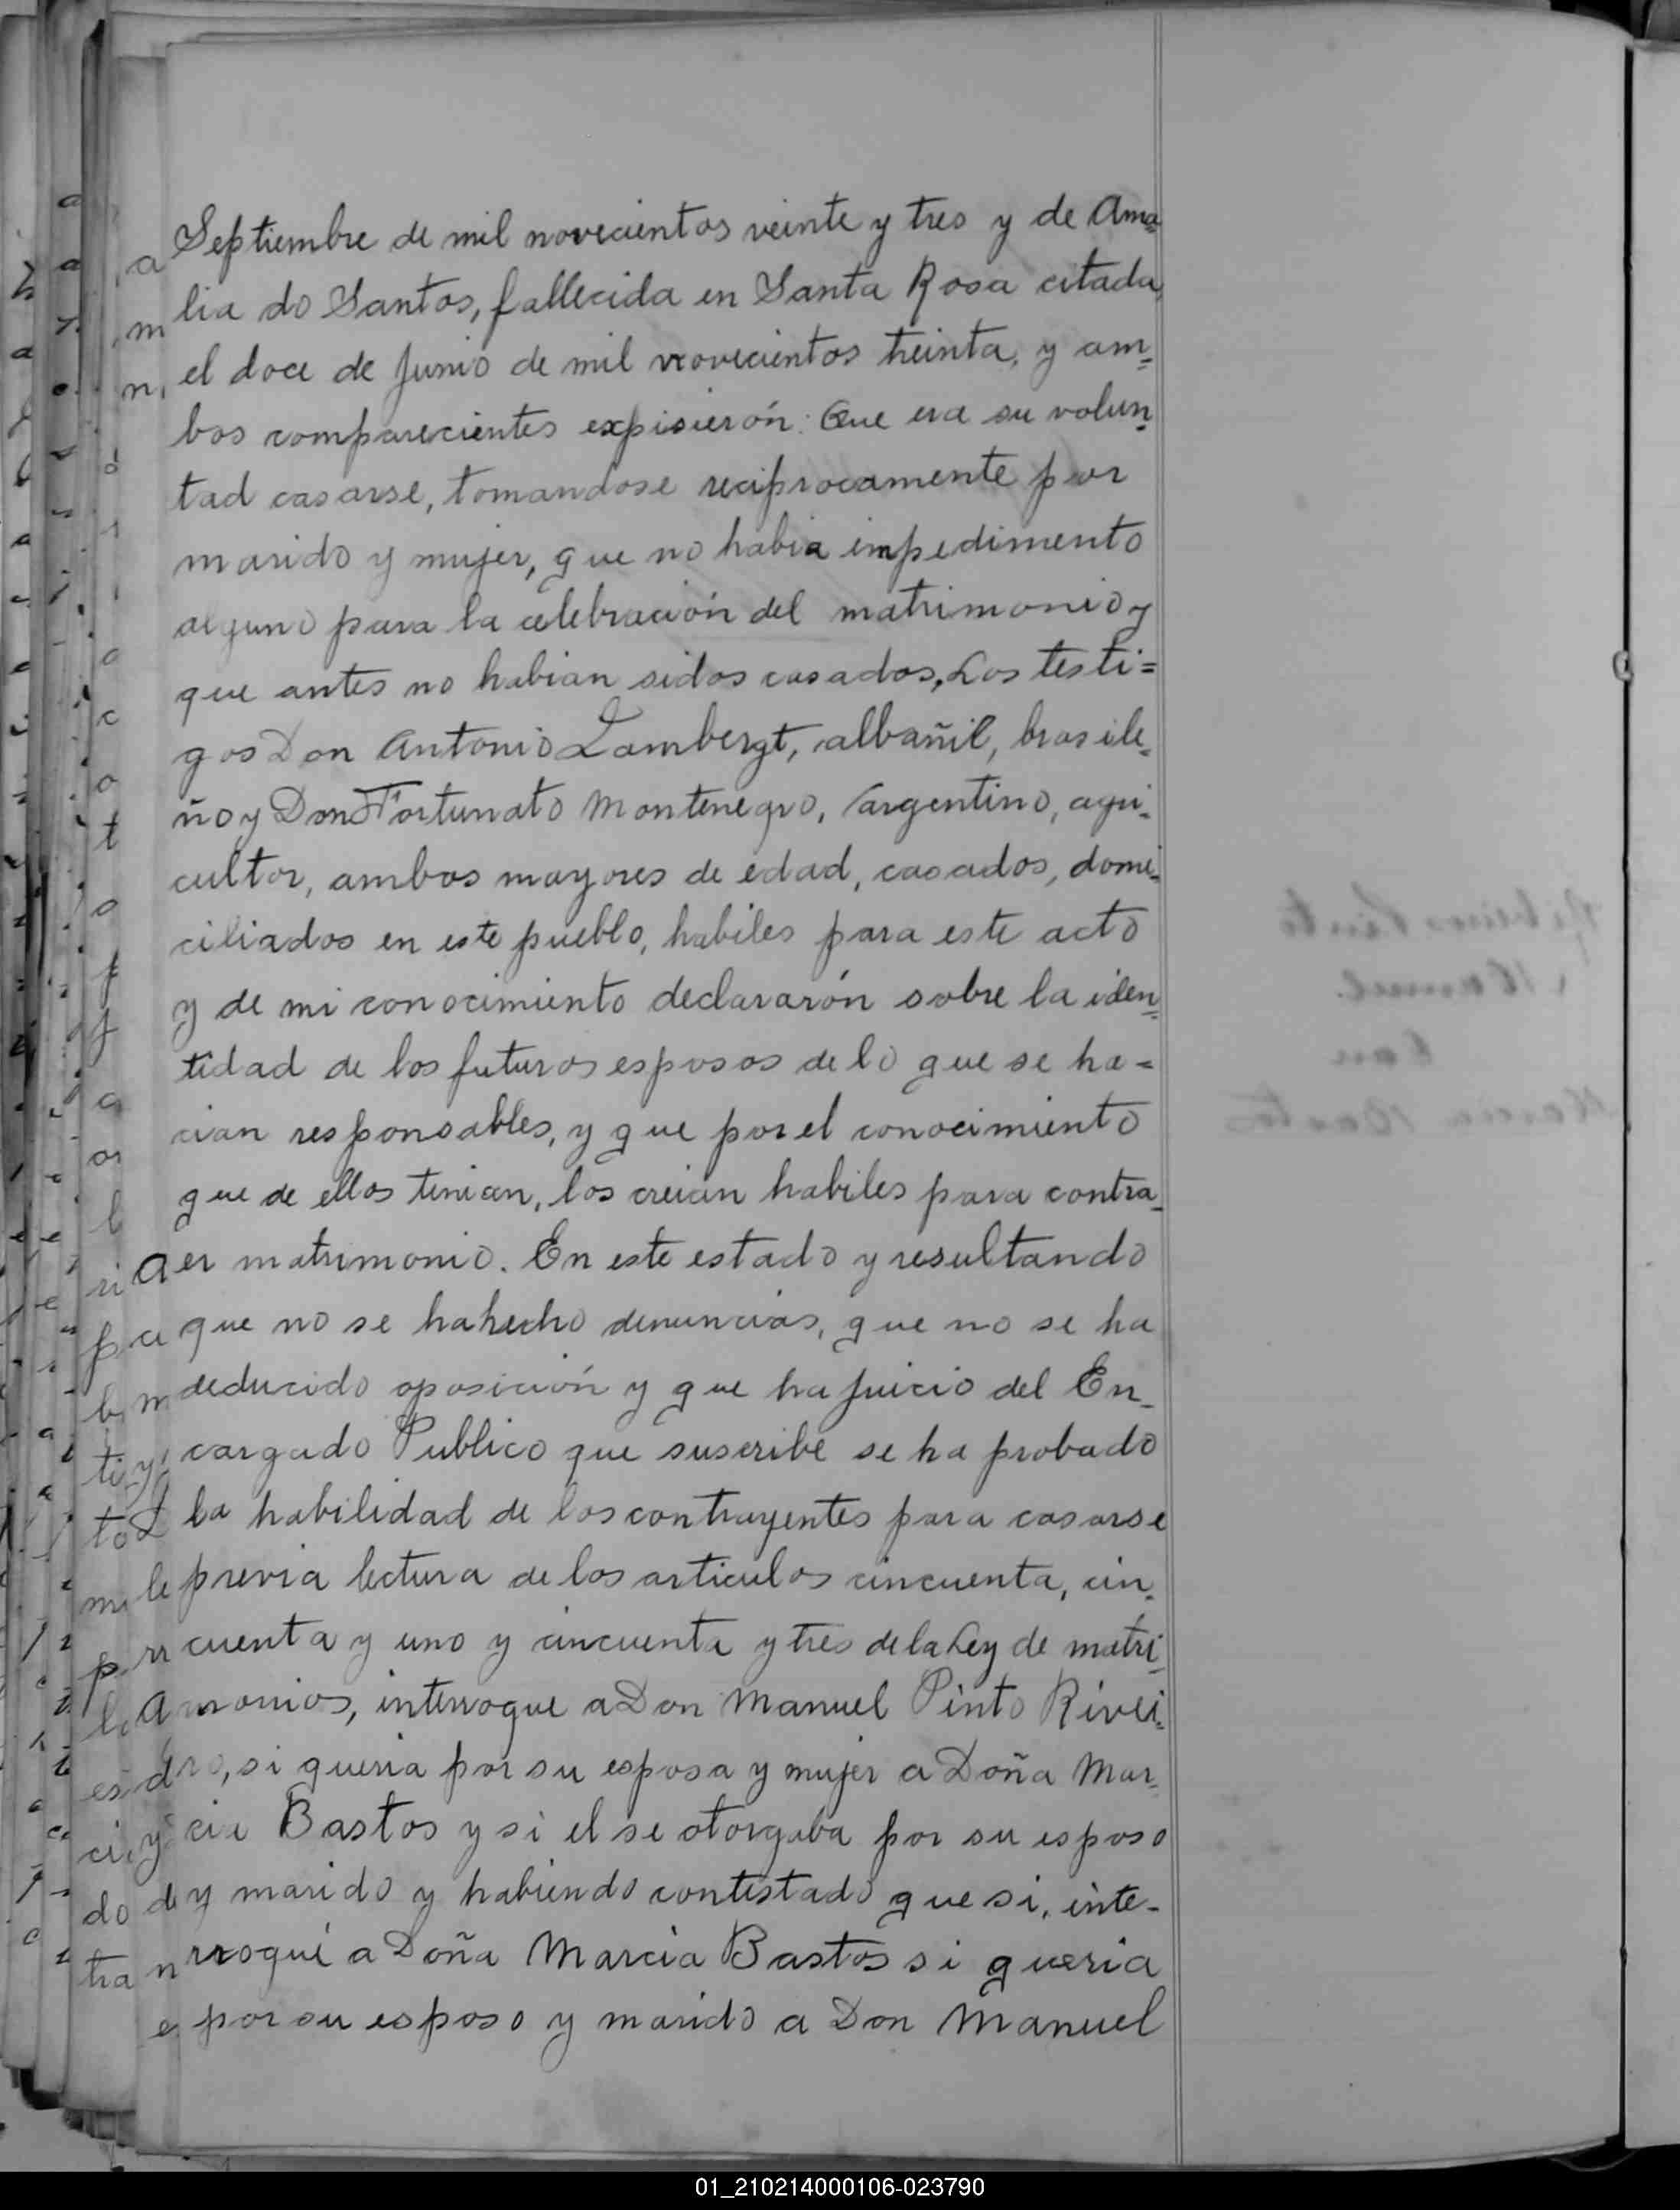 Septiembre de mil novecientos veinte y tres y de Ama=
lia do Santos, fallecida en Santa Rosa citada,
el doce de Junio de mil novecientos treinta, y am=
bos comparecientes expisierón: Que era su volun=
tad casarse, tomandose reciprocamente por
marido y mujer, que no habia impedimento
alguno para la celebración del matrimonio y
que antes no habian sidos casados, Los testi=
gos Don Antonio Lambergt, albañil, brasile=
ño y Don Fortunato Montenegro, argentino, agri=
cultor, ambos mayores de edad, casados, domi=
ciliados en este pueblo, habiles para este acto
y de mi conocimiento declararón sobre la iden=
tidad de los futuros esposos de lo que se ha=
cian responsables, y que por el conocimiento
que de ellos tenian, los creian habiles para contra_
er matrimonio. En este estado y resultando
que no se ha hecho denuncias, que no se ha
deducido oposición y que ha juicio del En_
cargado Publico que suscribe se ha probado
la habilidad de los contrayentes para casarse
previa lectura de los articulos cincuenta, cin_
cuenta y uno y cincuenta y tres de la Ley de matri_
monios, interroque a Don Manuel Pinto Rivei=
ro, si queria por su esposa y mujer a Doña Mar_
cia Bastos y si el se otorgaba por su esposo
y marido y habiendo contestado que si, inte-
rroqué a Doña Marcia Bastos si queria
por su esposo y marido a Don Manuel
01_210214000106-023790